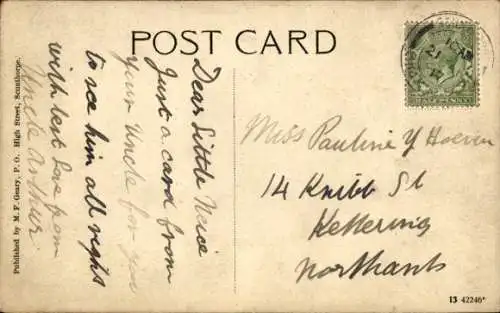 POST CARD
Dear Little Neice
Just a card from
your Uncle for you
to see him all right
with best love from
Uncle Arthur
Miss Pauline Y
14 Knibb St
Kettering
Northants
Published by M. F. Geary, P. O. High Street, Scunthorpe.
13 42246*